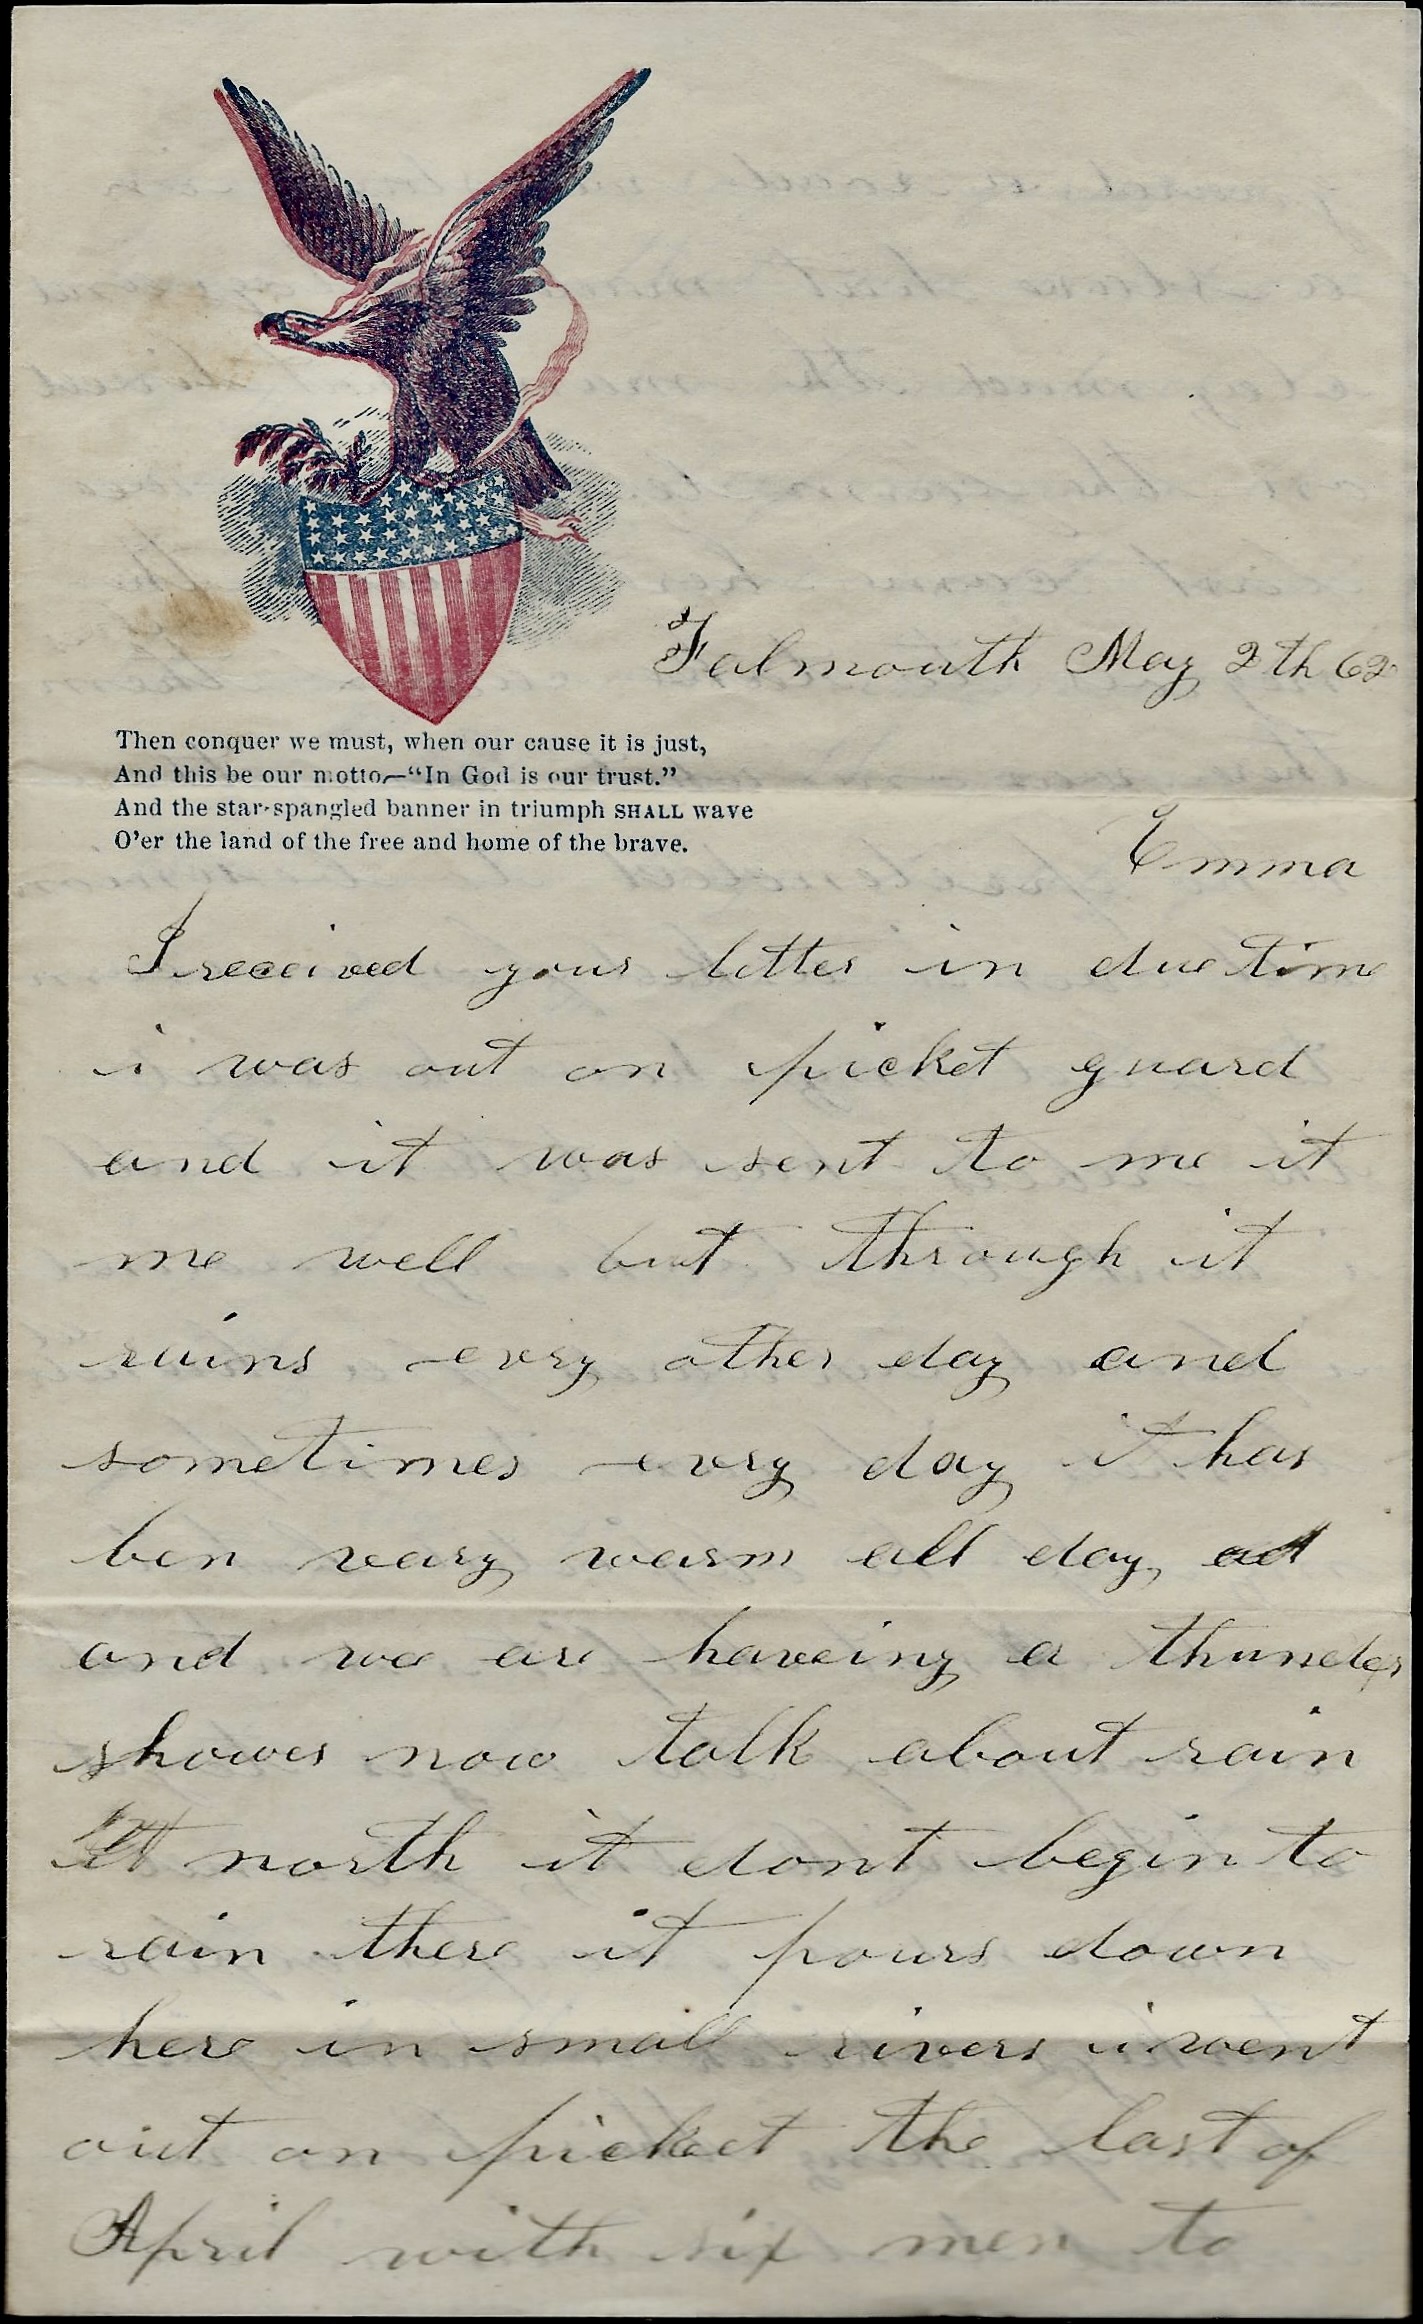 Falmouth May 2th 62
Then conquer we must, when our cause it is just,
And this be our motto,—“In God is our trust.”
And the star-spangled banner in triumph SHALL wave
O’er the land of the free and home of the brave.
Emma
I received your letter in due time
i was out on picket guard
and it was sent to me it
me well but through it
rains every other day and
sometimes every day it has
ben veary warm all day ad
and we are haveing a thunder
shower now talk about rain
north it dont begin to
rain there it pours down
here in small rivers i went
out on picket the last of
April with six men to